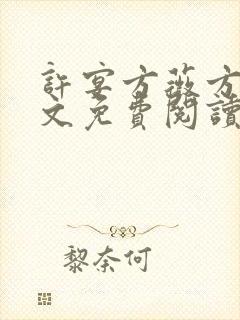 許宴方薇方
文免費閱讀
黎奈何